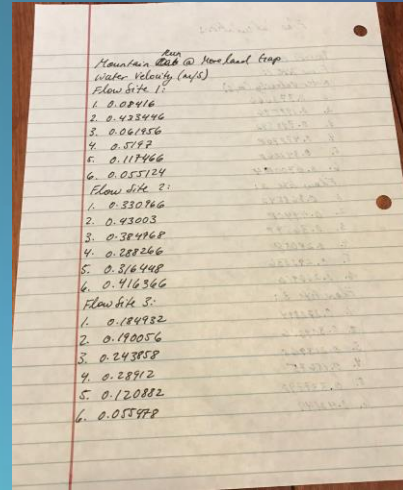 Mountain Run @ Moreland trap
Water Velocity (m/s)
Flow Site 1:
1. 0.08416
2. 0.423446
3. 0.061956
4. 0.5197
5. 0.117466
6. 0.055124
Flow Site 2:
1. 0.330966
2. 0.43003
3. 0.384968
4. 0.288266
5. 0.316448
6. 0.416366
Flow Site 3:
1. 0.184932
2. 0.190056
3. 0.243858
4. 0.28912
5. 0.120882
6. 0.055978